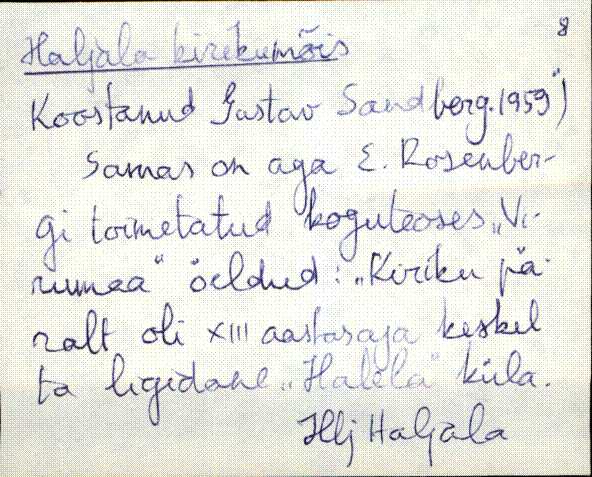 8
Haljala kirikumõis
Koostanud Gustav Sandberg. 1959")
Samas on aga E. Rosenber-
gi toimetatud koguteoses „Vi-
rumaa“ öeldud: „Kiriku pä-
ralt oli XIII aastasaja keskel
ta ligidane „Halela“ küla.
Hlj Haljala